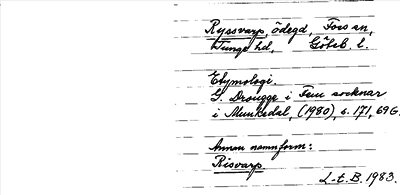 Ryssvarp, ödegd, Foss sn,
Tunge hd, Göteb. l.
Etymologi.
G. Drougge i Fem socknar
i Munkedal, (1980), s. 171, 69 G.
Annan namnform:
Risvarp.
L-t. B. 1983.